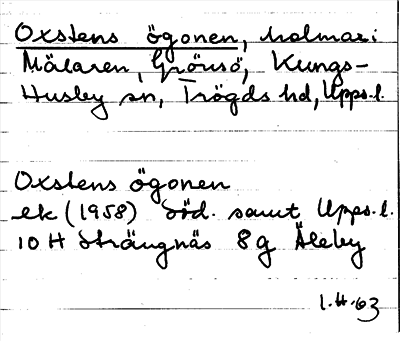 Oxstens ögonen, holmar i
Mälaren, Grönsö, Kungs-
Husby sn, Trögds hd, Upps.l.
Oxstens ögonen
ek (1958) Söd. samt Upps.l.
10 H Strängnäs 8g Äleby
1.H.63